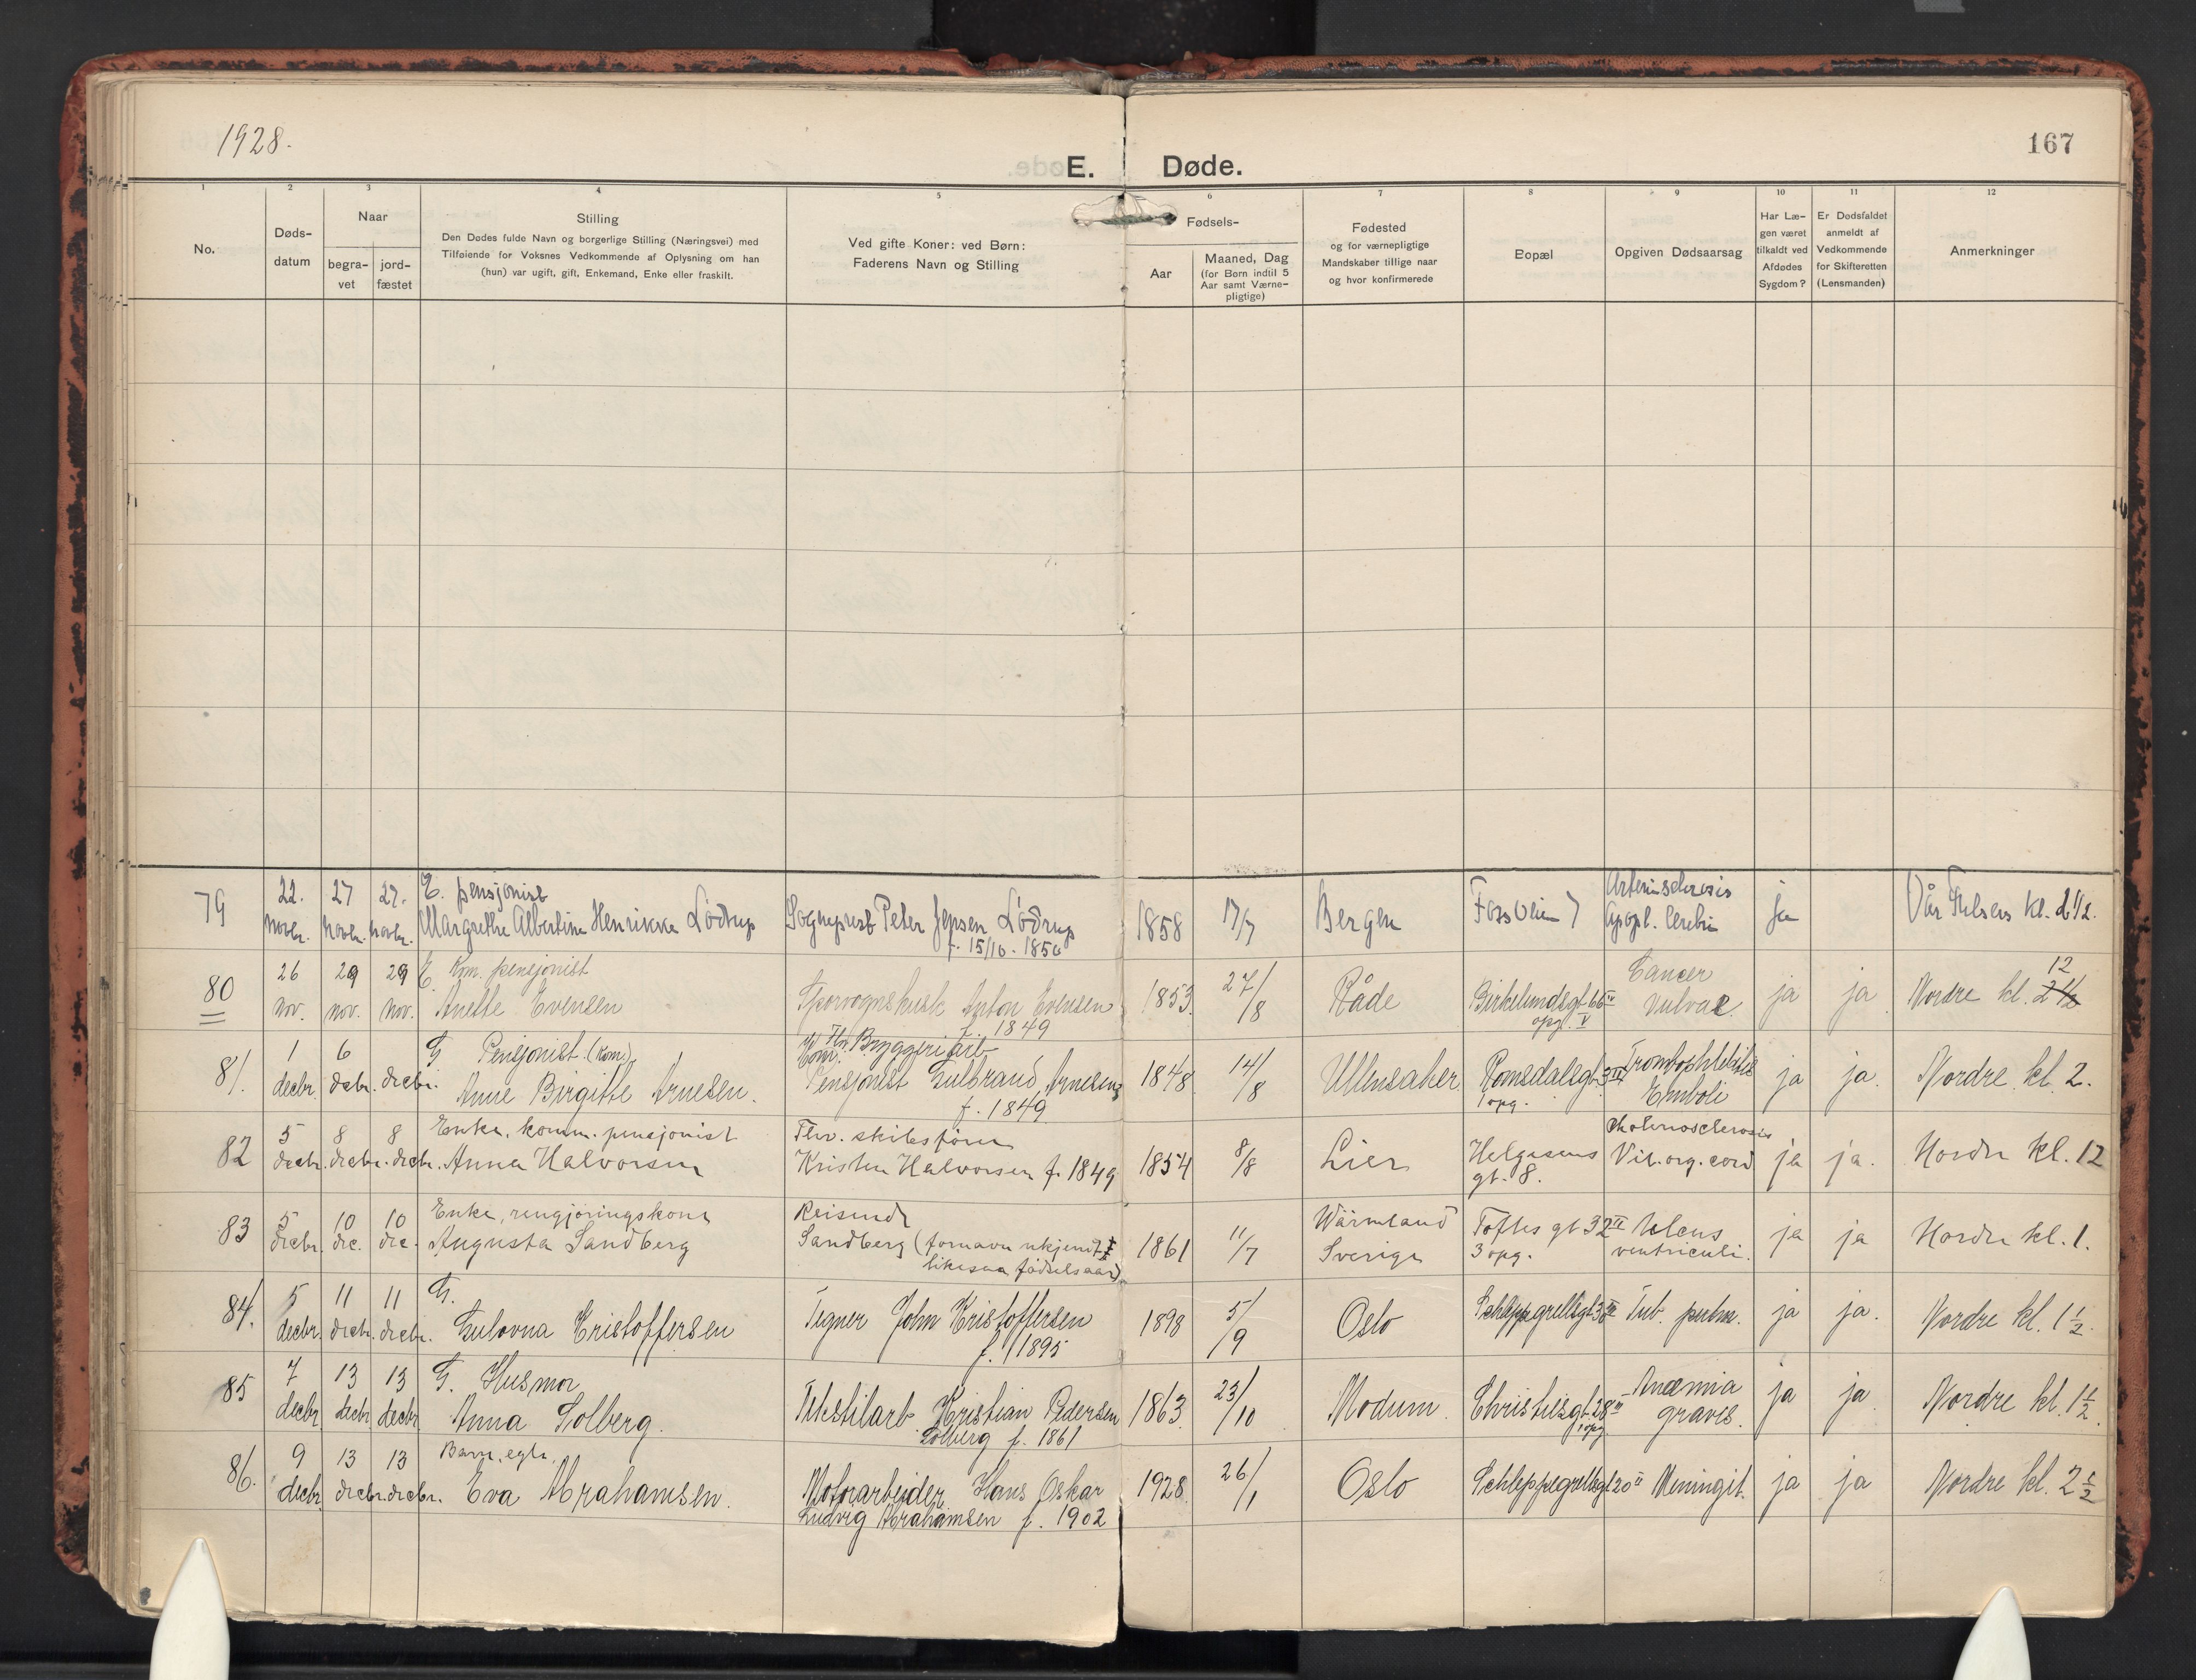 1928.
167
E. Døde.
1 2 3 4 5 6 7 8 9 10 11 12
No.
Døds-
datum
Naar
begra-
vet
jord-
fæstet
Stilling
Den Dødes fulde Navn og borgerlige Stilling (Næringsvei) med
Tilføiende for Voksnes Vedkommende af Oplysning om han
(hun) var ugift, gift, Enkemand, Enke eller fraskilt.
Ved gifte Koner: ved Børn:
Faderens Navn og Stilling
Fødsels-
Aar
Maaned, Dag
(for Børn indtil 5
Aar samt Værne-
pligtige)
Fødested
og for værnepligtige
Mandskaber tillige naar
og hvor konfirmerede
Bopæl
Opgiven Dødsaarsag
Har Læ-
gen været
tilkaldt ved
Afdødes
Sygdom?
Er Dødsfaldet
anmeldt af
Vedkommende
for Skifteretten
(Lensmanden)
Anmerkninger
79
22.
novbr.
27
novbr.
27.
novbr.
E. pensjonist
Margrethe Albertine Henrikke Lödrup
Sogneprest Peter Jensen Lödrup
f. 15/10. 1850
1858
17/7
Bergen
Fossveien 7
Arteriosclerosis
Apopl. Cerebri
ja
Vår Frelsers kl. 2 1/2.
80
26
nov.
29
nov.
29
nov.
E. Kom. pensjonist
Anette Evensen
Sporvognskusk Anton Evensen
f. 1849
1853
27/8
Råde
Birkelundsgt. 6
opg. V
Cancer
vulvae
ja
ja
12
Nordre kl. 2 1/2
81.
1
decbr.
6
decbr.
decbr.
G Pensjonist (kom.)
Anne Birgitte Arnesen.
Bryggeriarb
Kom.
Pensjonist Gulbrand Arnesen
f. 1849
1848
14/8
Ullensaker
Romsdalsgt. 3 III
1 opg.
Trombophlebitis
Emboli
ja
ja.
Nordre kl. 2.
82
5
decbr.
8
decbr.
8
decbr.
Enke, komm. pensjonist
Anna Halvorsen
Fhv. skibsfører
Kristen Halvorsen f. 1849
1854
8/8
Lier
Helgesens
gt. 8.
Vit. org. cord
ja
ja.
Nordre kl. 12
83
5
decbr.
10
dec.
10
dec.
Enke, rengjøringskone
Augusta Sandberg
Reisende
Sandberg (fornavn ukjendt
likesaa fødselsaar)
1861
11/7
Wärmland
Sverige
Toftes gt 32 II
3 opg.
Ulcus
ventriculi.
ja
ja
Nordre kl. 1.
84.
5
decbr.
11
decbr.
11
decbr.
G.
Gulovna Kristoffersen
Tegner John Kristoffersen
f. 1895
1898
5/9
Oslo
Schleppegrellsgt. 3
Tub. pulm.
ja
ja.
Nordre kl. 1 1/2.
85
7
decbr
13
decbr
13
decbr
G. Husmor
Anna Solberg.
Tekstilarb. Kristian Pedersen
Solberg f. 1861
1863
23/10
Modum
Christiesgt. 28 III
1 opg
Anæmia
graves.
ja
ja
Nordre kl. 1 1/2.
86.
9
decbr.
13
decbr.
13
decbr.
Barn, egte.
Eva Abrahamsen.
Motorarbeider Hans Oskar
Ludvig Abrahamsen f. 1902
1928
26/1
Oslo
Schleppegrellsgt 20 II
Meningit.
ja
ja
Nordre kl. 2 1/2